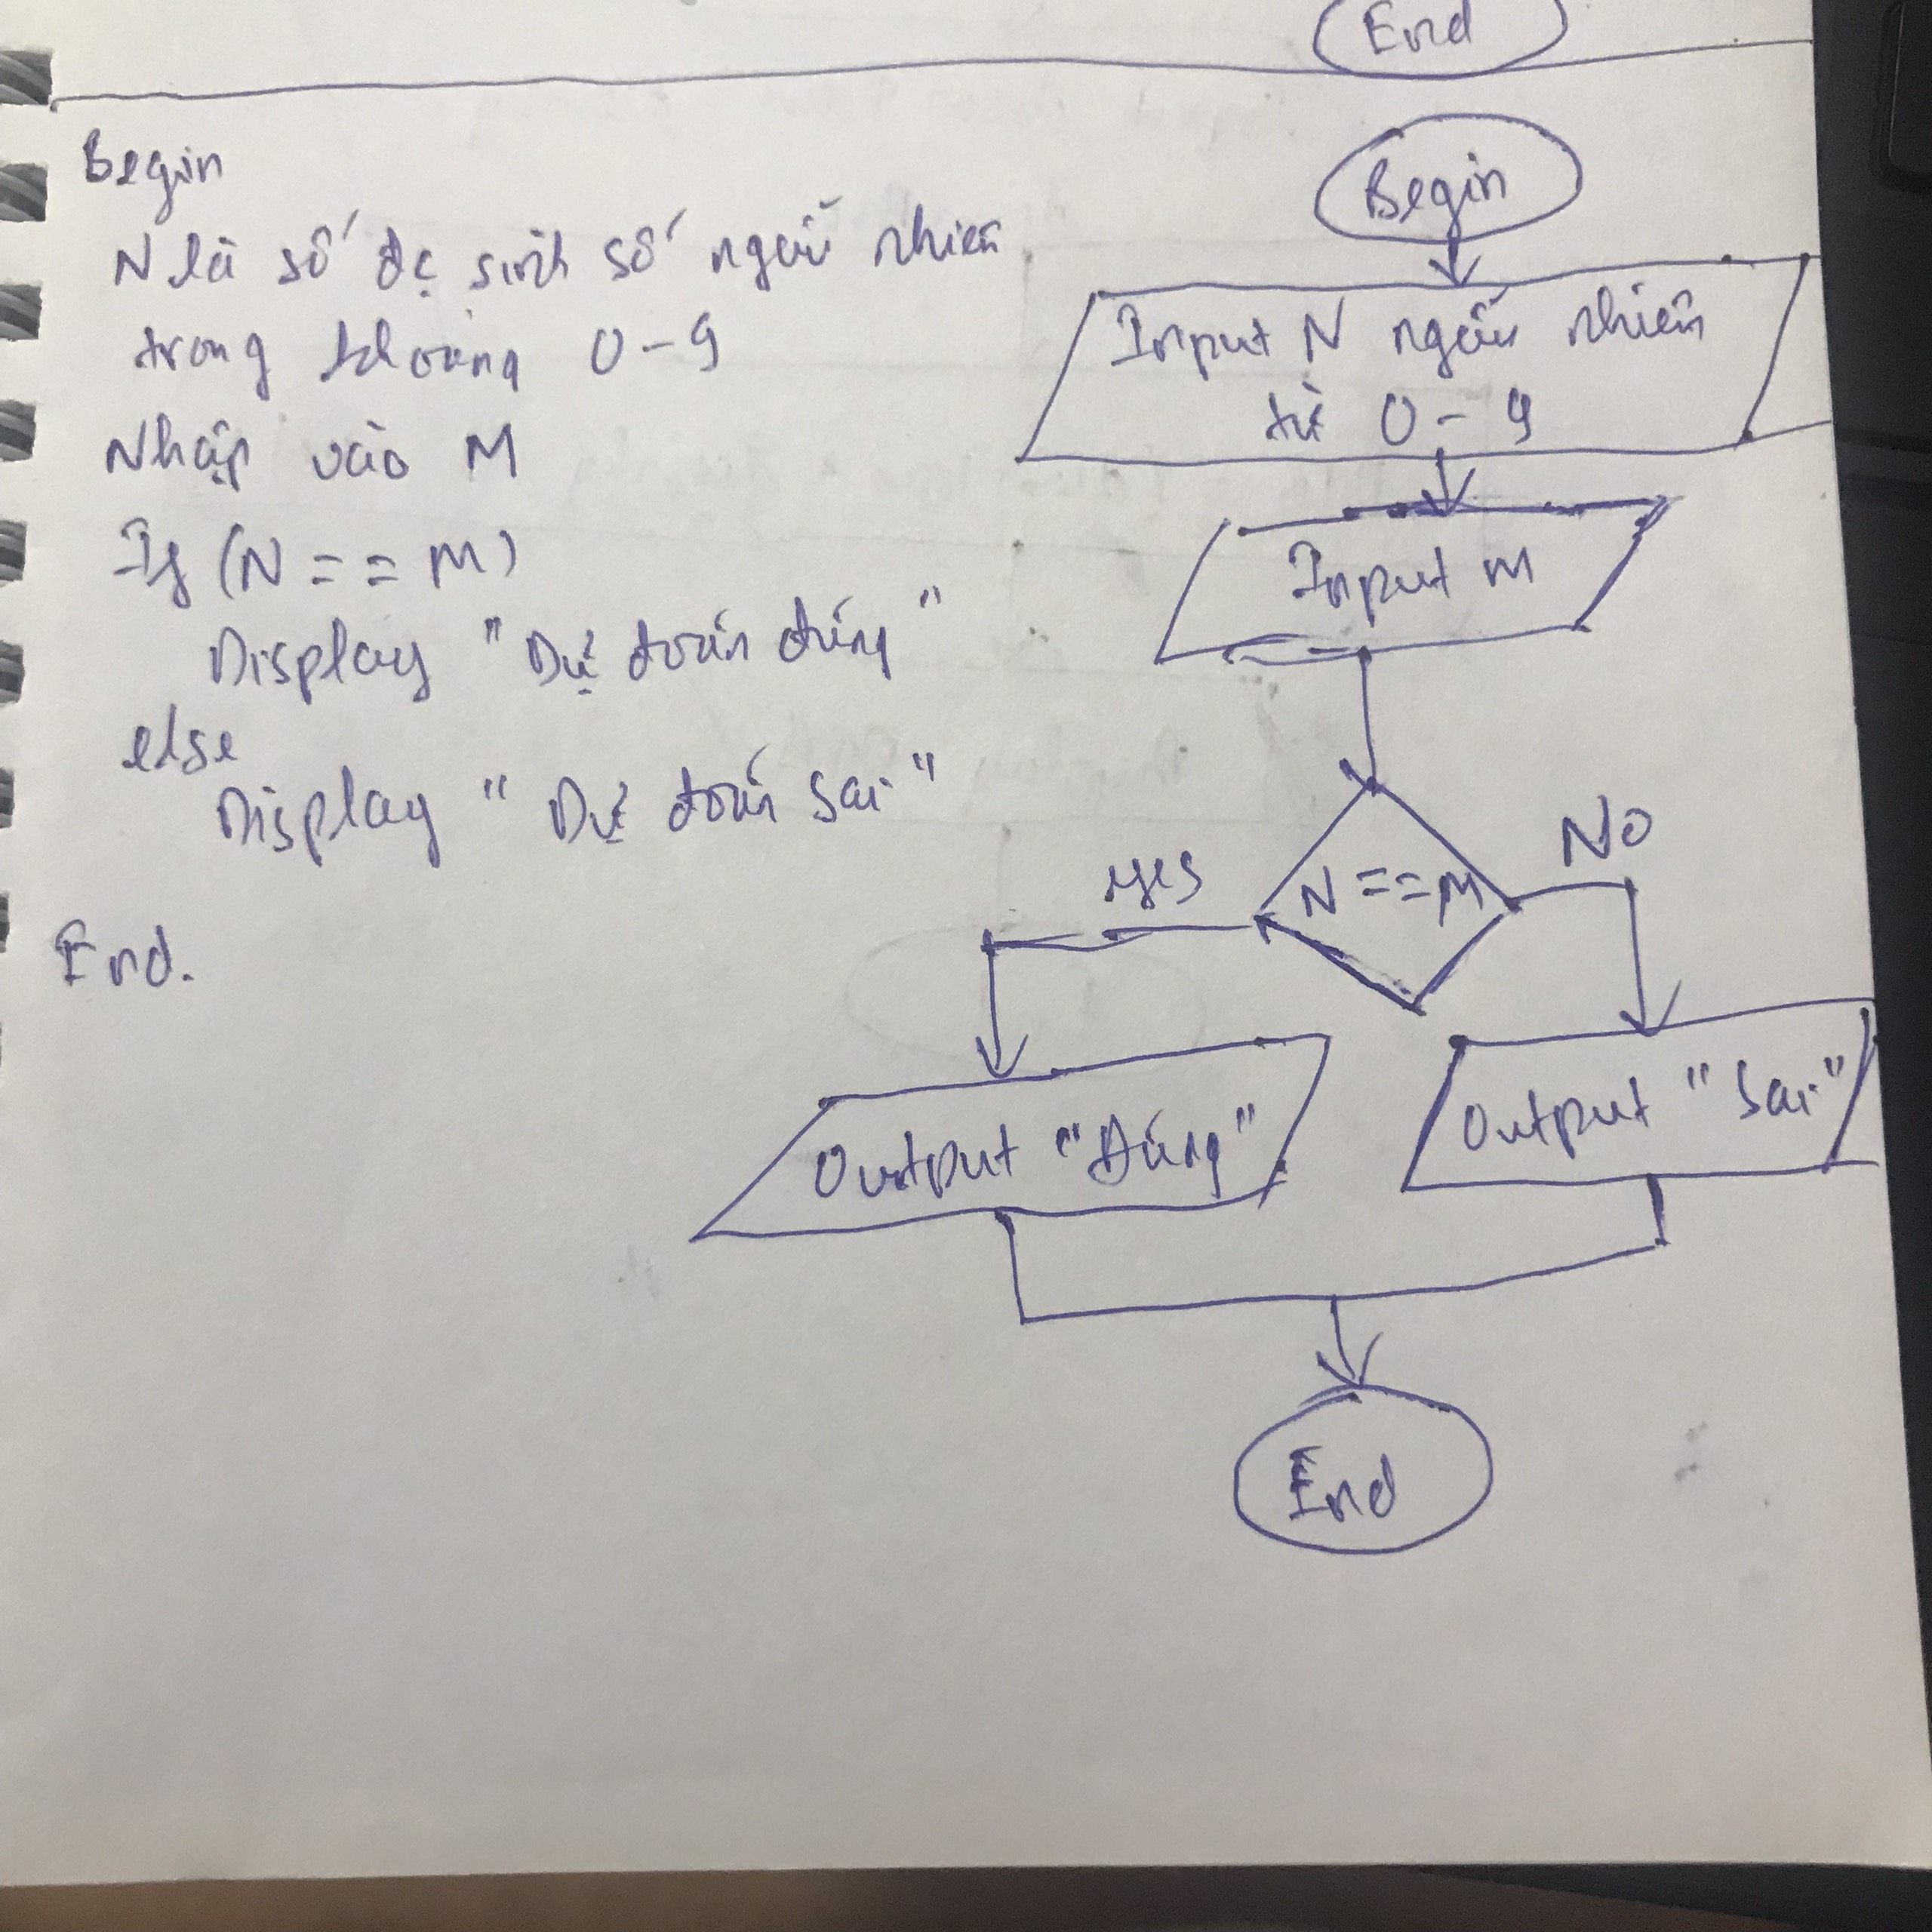 End
Begin
N là số để sinh số ngẫu nhiên
trong khoảng 0-9
Nhập vào M
If (N == M)
Display "Dự đoán đúng"
else
Display "Dự đoán sai"
End.
Begin
Input N ngẫu nhiên
từ 0-9
Input M
N==M
yes
NO
Output "Đúng"
Output "Sai"
End